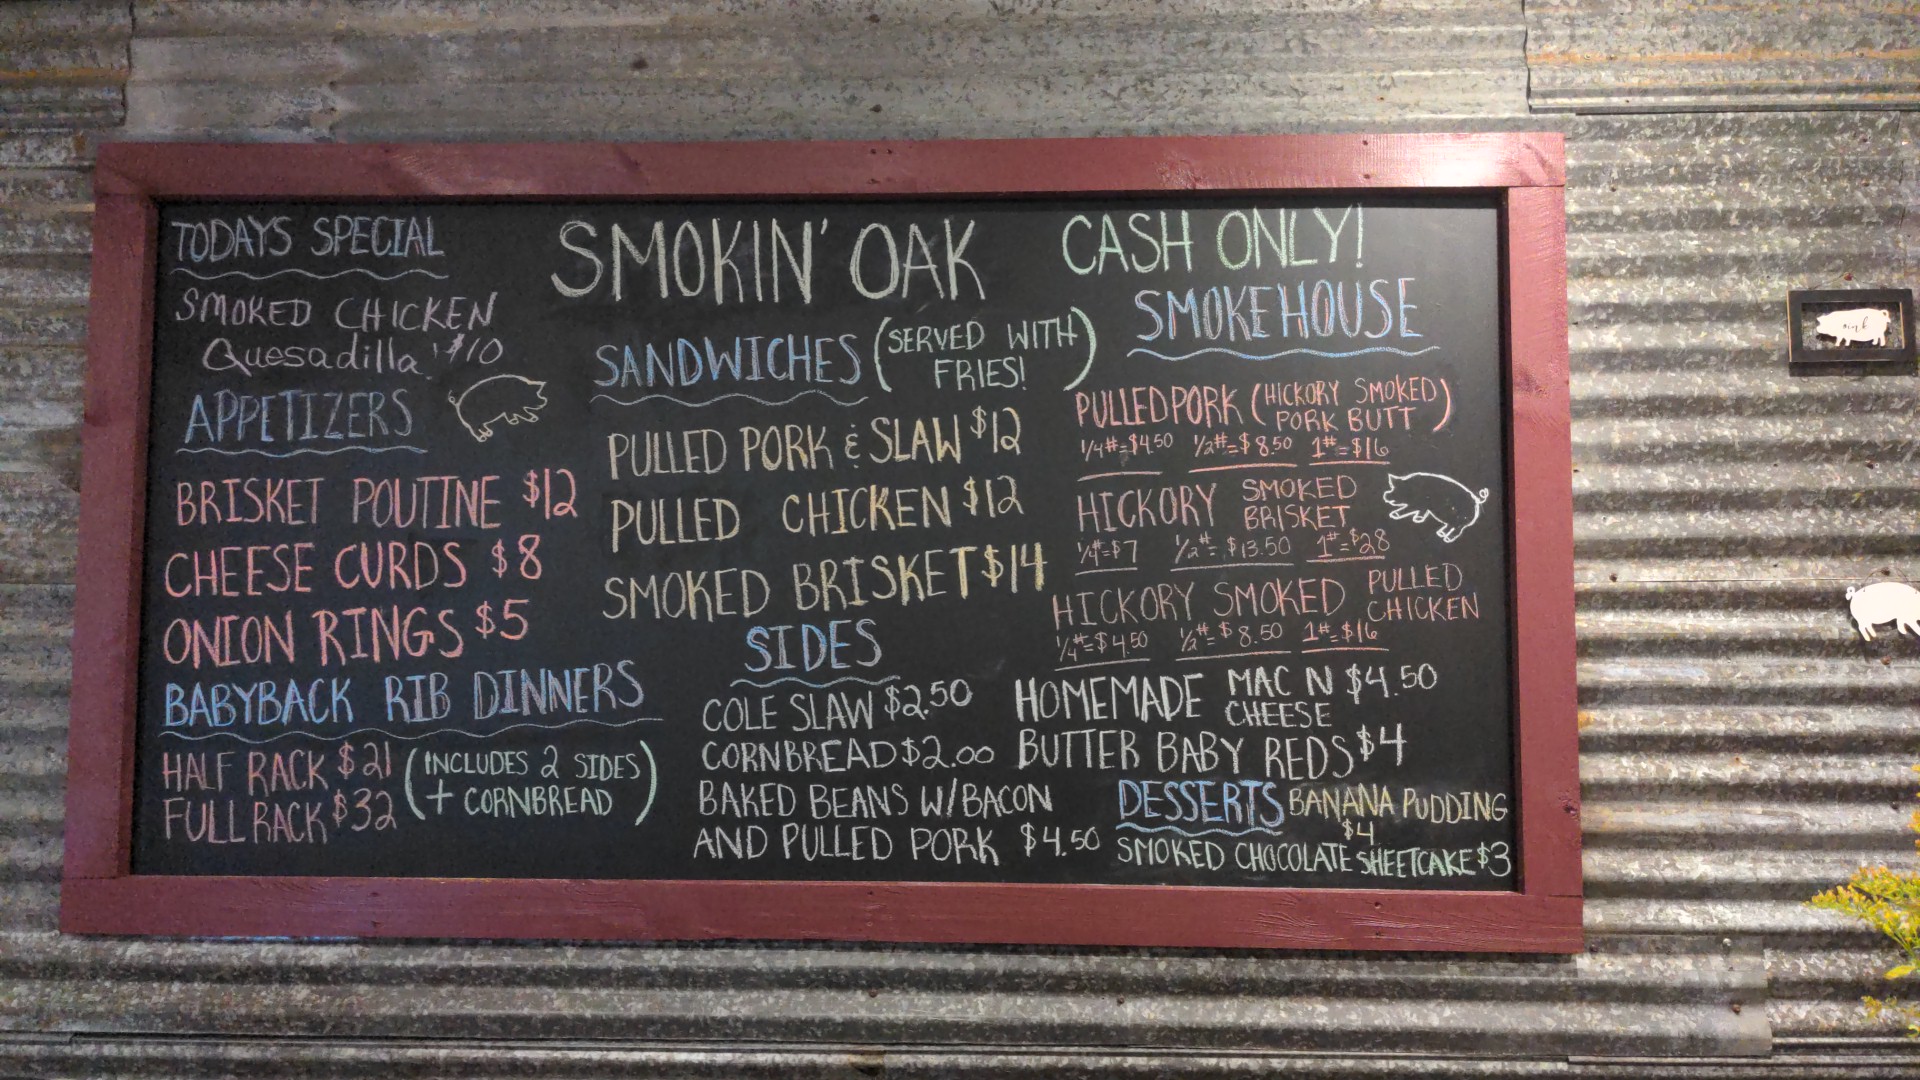 TODAYS SPECIAL
SMOKED CHICKEN
Quesadilla! $10
APPETIZERS
BRISKET POUTINE $12
CHEESE CURDS $8
ONION RINGS $5
BABYBACK RIB DINNERS
HALF RACK $21
FULL RACK $32
(INCLUDES 2 SIDES
+ CORNBREAD)
SMOKIN' OAK
SANDWICHES (SERVED WITH
FRIES!)
PULLED PORK & SLAW $12
PULLED CHICKEN $12
SMOKED BRISKET $14
SIDES
COLE SLAW $2.50
CORNBREAD $2.00
BAKED BEANS W/BACON
AND PULLED PORK $4.50
HOMEMADE MAC N
CHEESE $4.50
BUTTER BABY REDS $4
CASH ONLY!
SMOKEHOUSE
PULLED PORK (HICKORY SMOKED
PORK BUTT)
1/4#=$4.50 1/2#=$8.50 1#=$16
HICKORY SMOKED
BRISKET
1/4#=$7 1/2#=$13.50 1#=$28
HICKORY SMOKED PULLED
CHICKEN
1/4#=$4.50 1/2#=$8.50 1#=$16
DESSERTS BANANA PUDDING
$4
SMOKED CHOCOLATE SHEETCAKE $3
oink